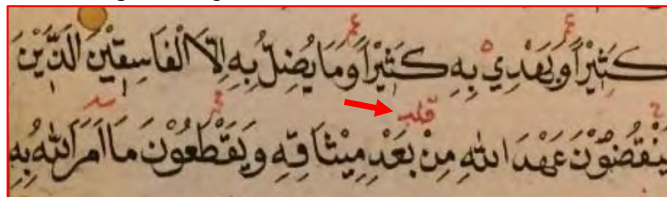 كَثِيْرًا وَيَهْدِيْ بِهِ كَثِيْرًا وَمَا يُضِلُّ بِهِ اِلَّا الْفَاسِقِيْنَ الَّذِيْنَ
قلب
يَنْقُضُوْنَ عَهْدَ اللّٰهِ مِنْ بَعْدِ مِيْثَاقِهِ وَيَقْطَعُوْنَ مَا اَمَرَ اللّٰهُ بِهِ